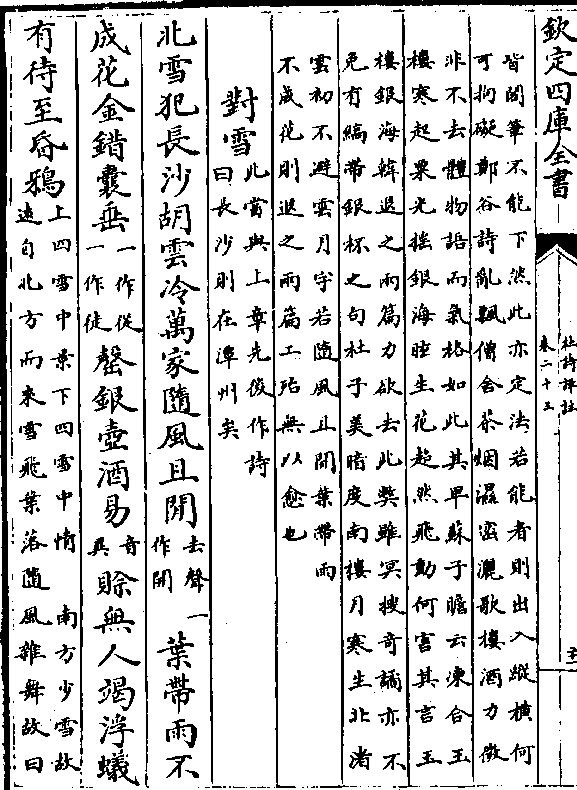 欽定四庫全書
杜詩詳註
卷二十三
皆閣筆不能下然此亦定法若能者則出入縱橫何
可拘礙鄭谷詩亂飄僧舍茶烟濕密灑歌樓酒力微
非不去體物語而氣格如此其卑蘇子瞻云凍合玉
樓寒起粟光搖銀海眩生花超然飛動何害其言玉
樓銀海韓退之兩篇力欲去此弊雖冥搜奇譎亦不
免有縞帶銀杯之句杜子美暗度南樓月寒生北渚
雲初不避雲月字若隨風且開葉帶雨
不成花則退之兩篇工殆無以愈也
對雪
此當與上章先後作詩
曰長沙則在潭州矣
北雪犯長沙胡雲冷萬家隨風且閒
去聲一
作開
葉帶雨不
成花金錯囊垂
一作從
一作徒
罄銀壺酒易
音
異
賒無人竭浮蟻
有待至昏鴉
上四雪中景下四雪中情 南方少雪故
逺自北方而來雪飛葉落隨風雜舞故曰